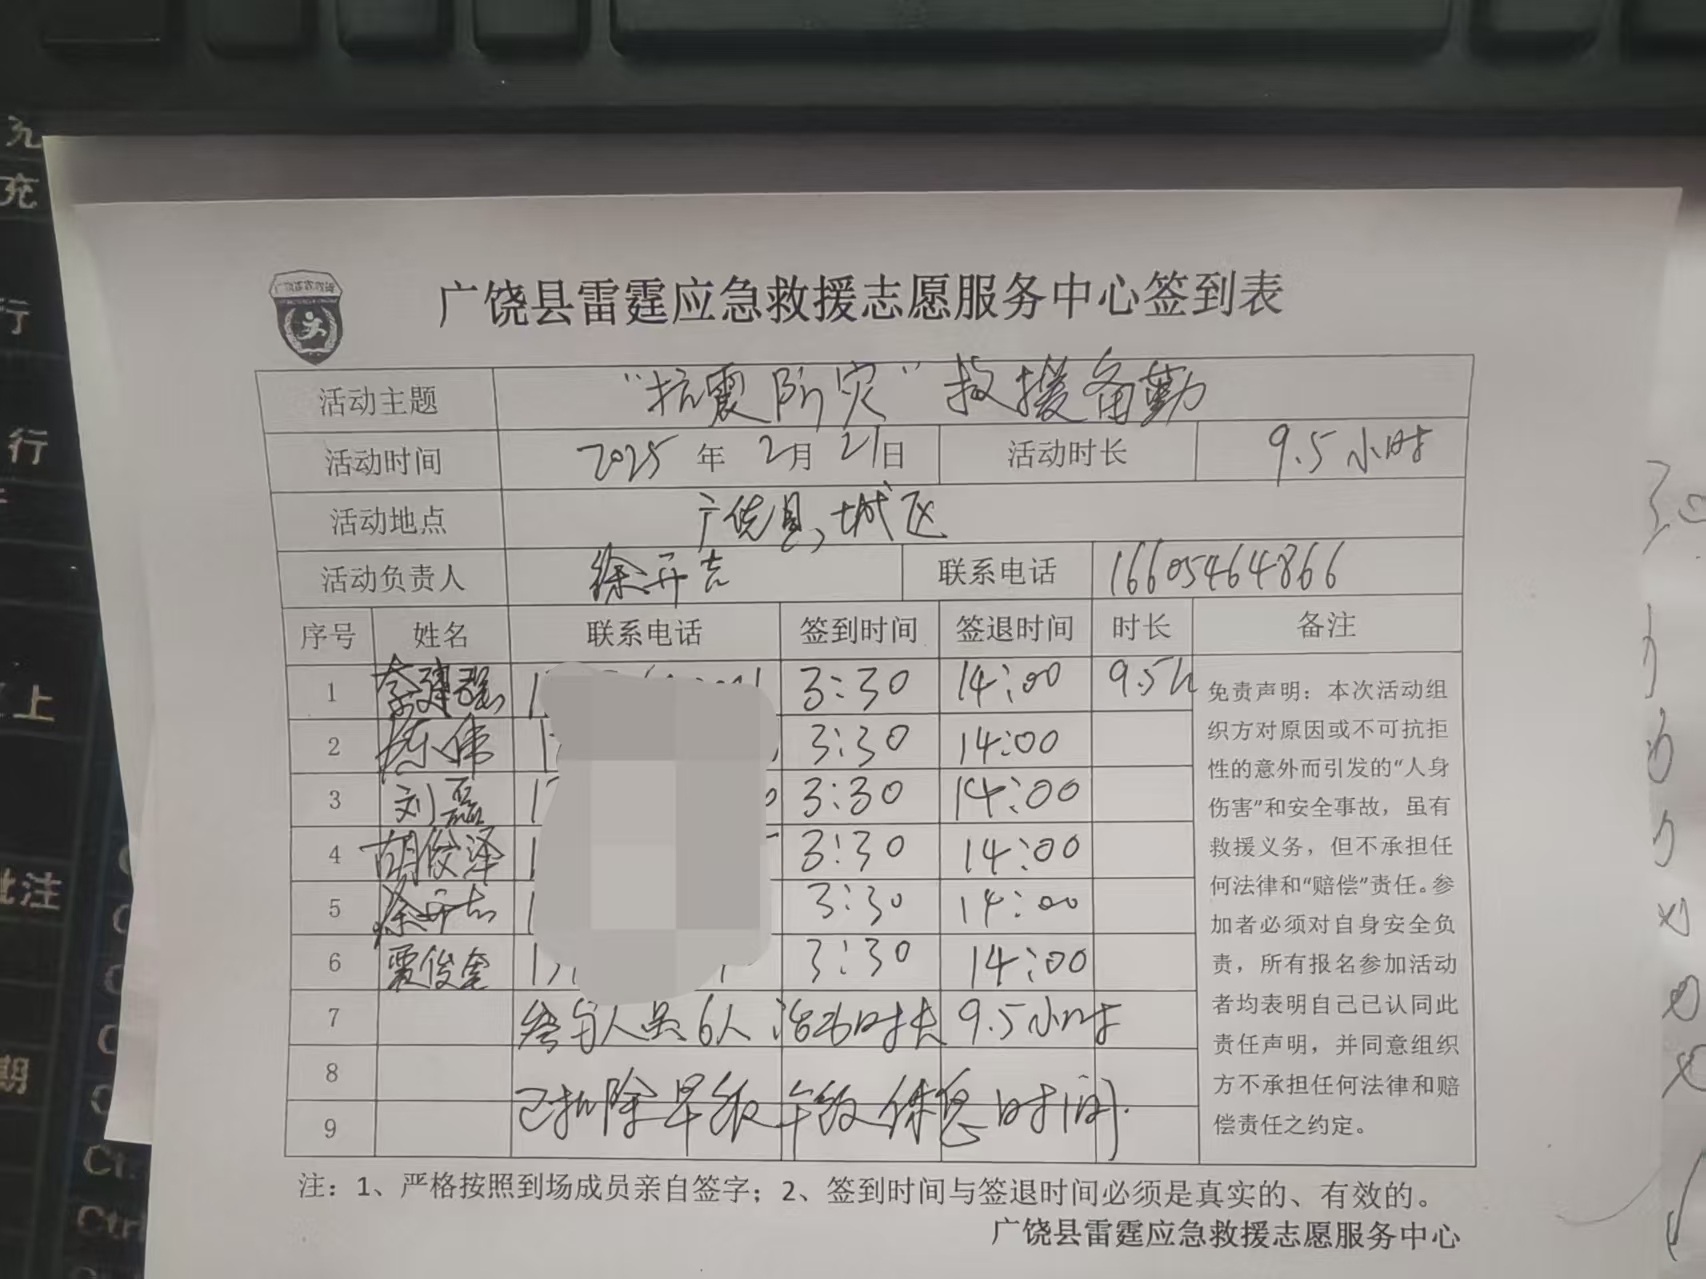 广饶县雷霆应急救援志愿服务中心签到表
活动主题 “抗震防灾”救援备勤
活动时间 2025年2月21日 活动时长 9.5小时
活动地点 广饶县,城区
活动负责人 徐开吉 联系电话 16605464866
序号 姓名 联系电话 签到时间 签退时间 时长 备注
1 李建强 3:30 14:00 9.5h
2 陈伟 3:30 14:00
3 刘磊 3:30 14:00
4 胡俊泽 3:30 14:00
5 徐开吉 3:30 14:00
6 俊奎 3:30 14:00
7 参与人员6人 活动时长9.5小时
8 已扣除早饭午饭休息时间.
9
免责声明：本次活动组
织方对原因或不可抗拒
性的意外而引发的“人身
伤害”和安全事故，虽有
救援义务，但不承担任
何法律和“赔偿”责任。参
加者必须对自身安全负
责，所有报名参加活动
者均表明自己已认同此
责任声明，并同意组织
方不承担任何法律和赔
偿责任之约定。
注：1、严格按照到场成员亲自签字；2、签到时间与签退时间必须是真实的、有效的。
广饶县雷霆应急救援志愿服务中心
充
行
行
上
批注
期
Ct
Ctrl